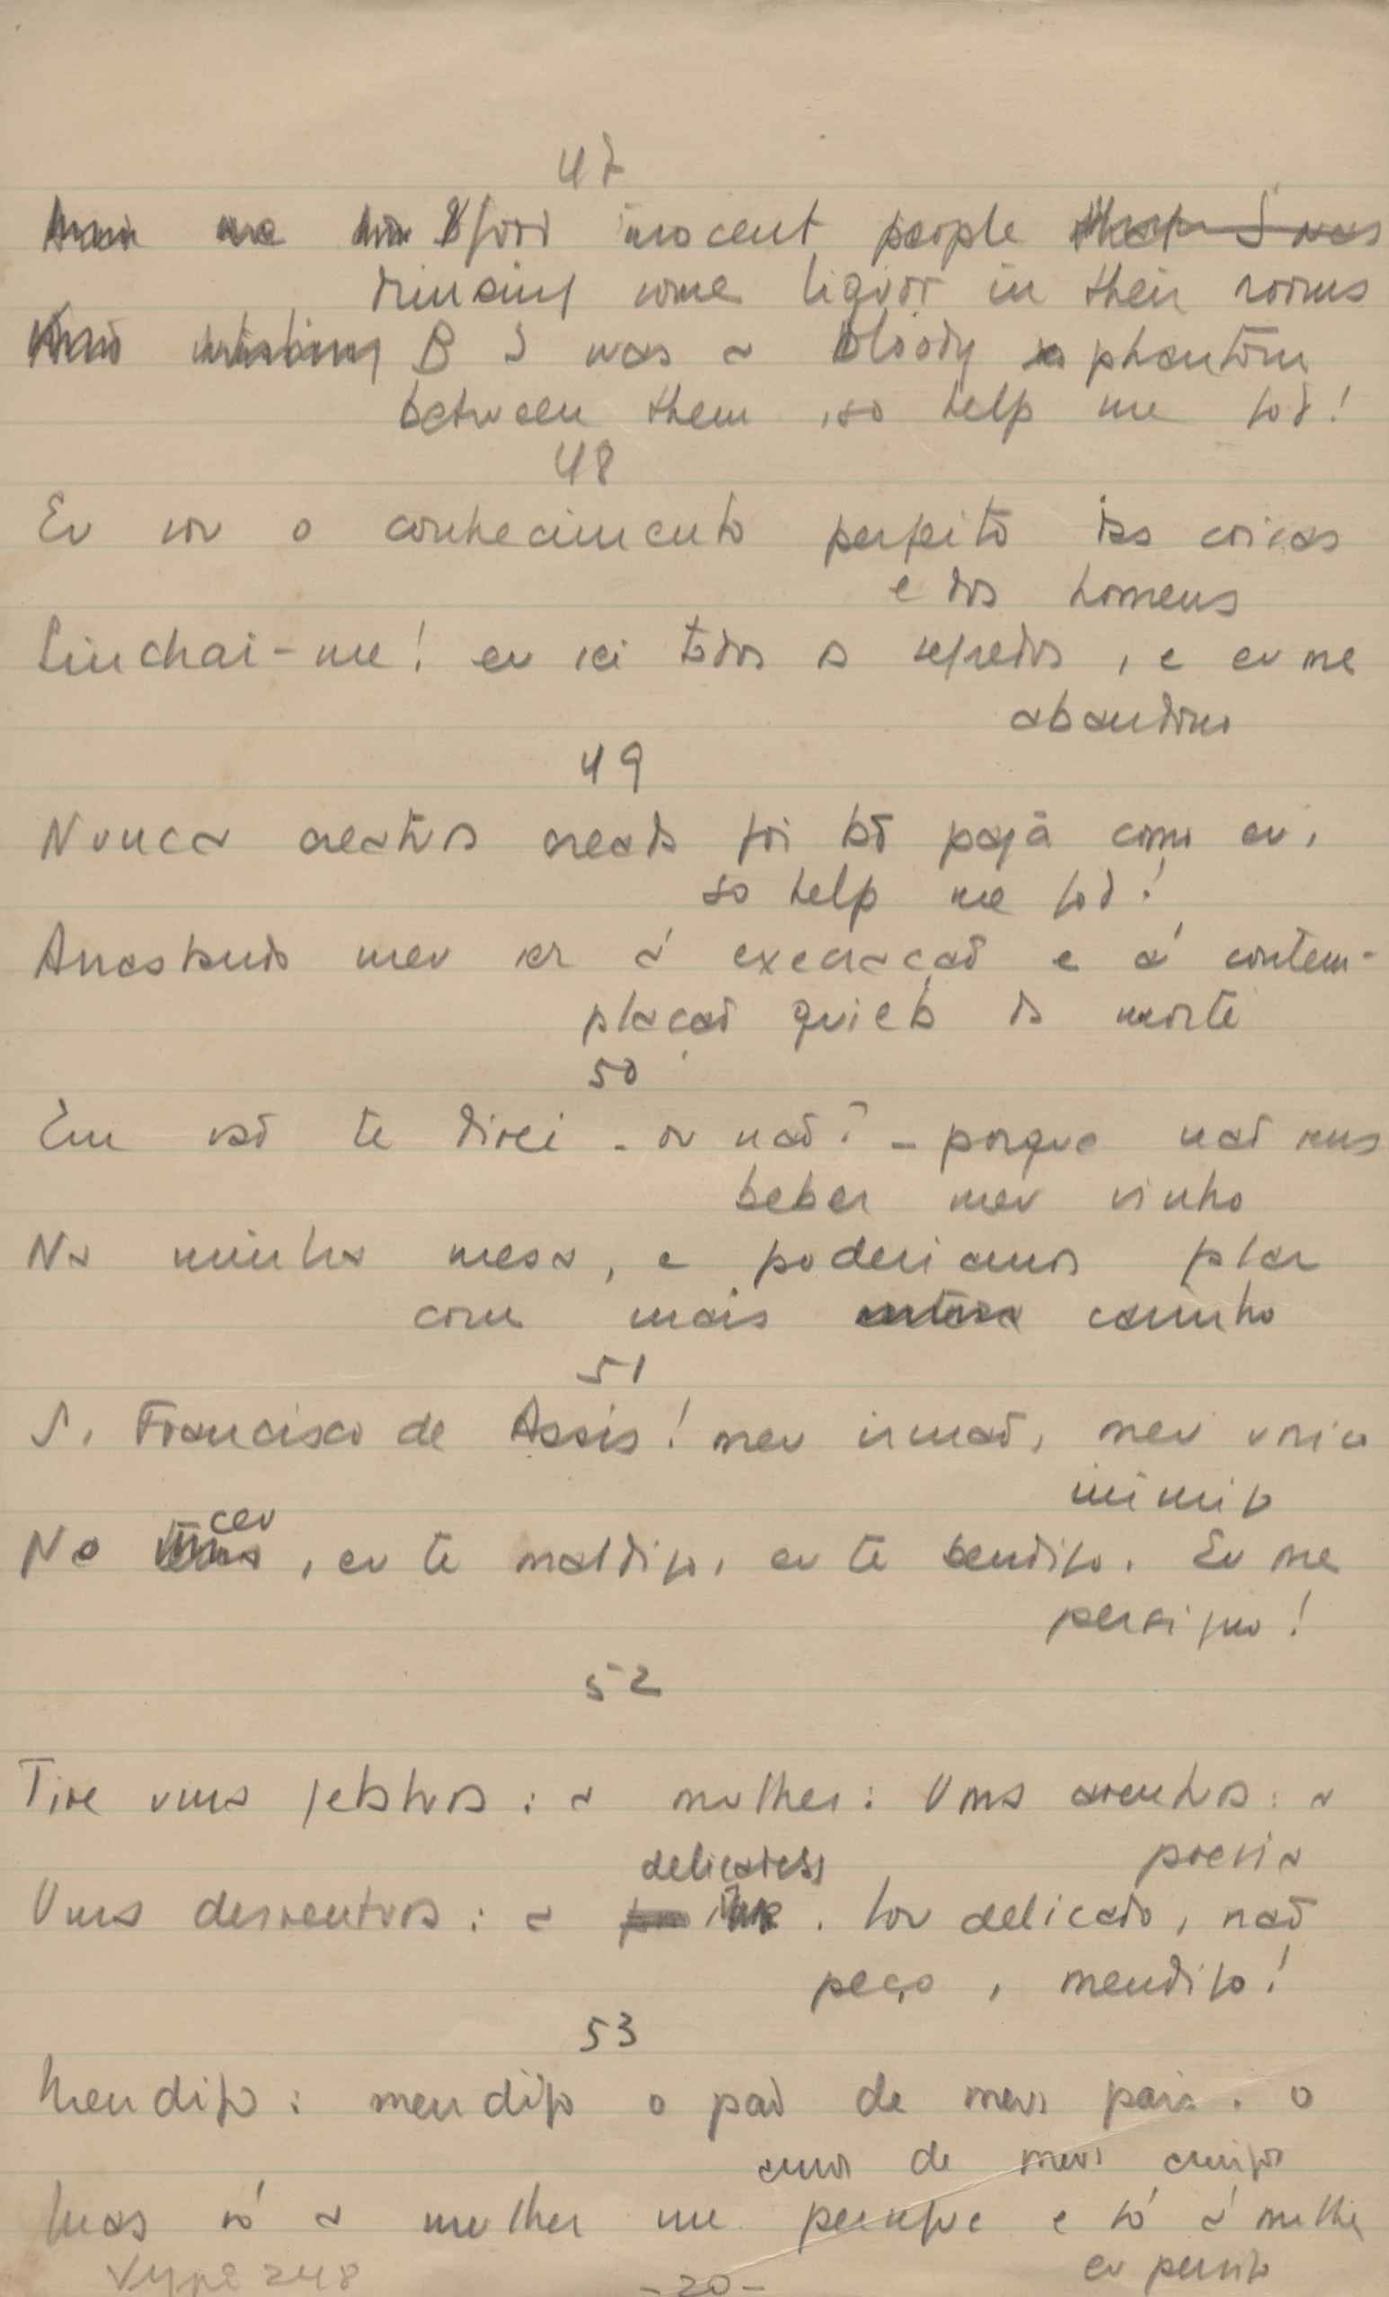 47
Good inocent people
drinking some liquor in their rooms
I was a bloody phantom
between them, so help me God!
48
Eu sou o conhecimento perfeito das coisas
e dos homens
Linchai-me! eu sei todos os segredos, e eu me
abandono
49
Nunca creatura creada foi tão pagã como eu,
so help me God!
Arrastando meu ser á execração e á contem-
plação quieta da morte
50
Em vão te direi - ou não? - porque não vens
beber meu vinho
Na minha mesa, e poderiamos falar
com mais carinho
51
S. Francisco de Assis! meu irmão, meu unico
inimigo
No ceu, eu te maldigo, eu te bendigo. Eu me
persigno!
52
Tive uma : a mulher: Uma aventura: a
poesia
Uma desventura: a delicadeza. Sou delicado, não
peço, mendigo!
53
Mendigo: mendigo o pão de meus pais. o
amor de meus amigos
Mas só a mulher me persegue e só á mulher
eu persigo
248
-20-